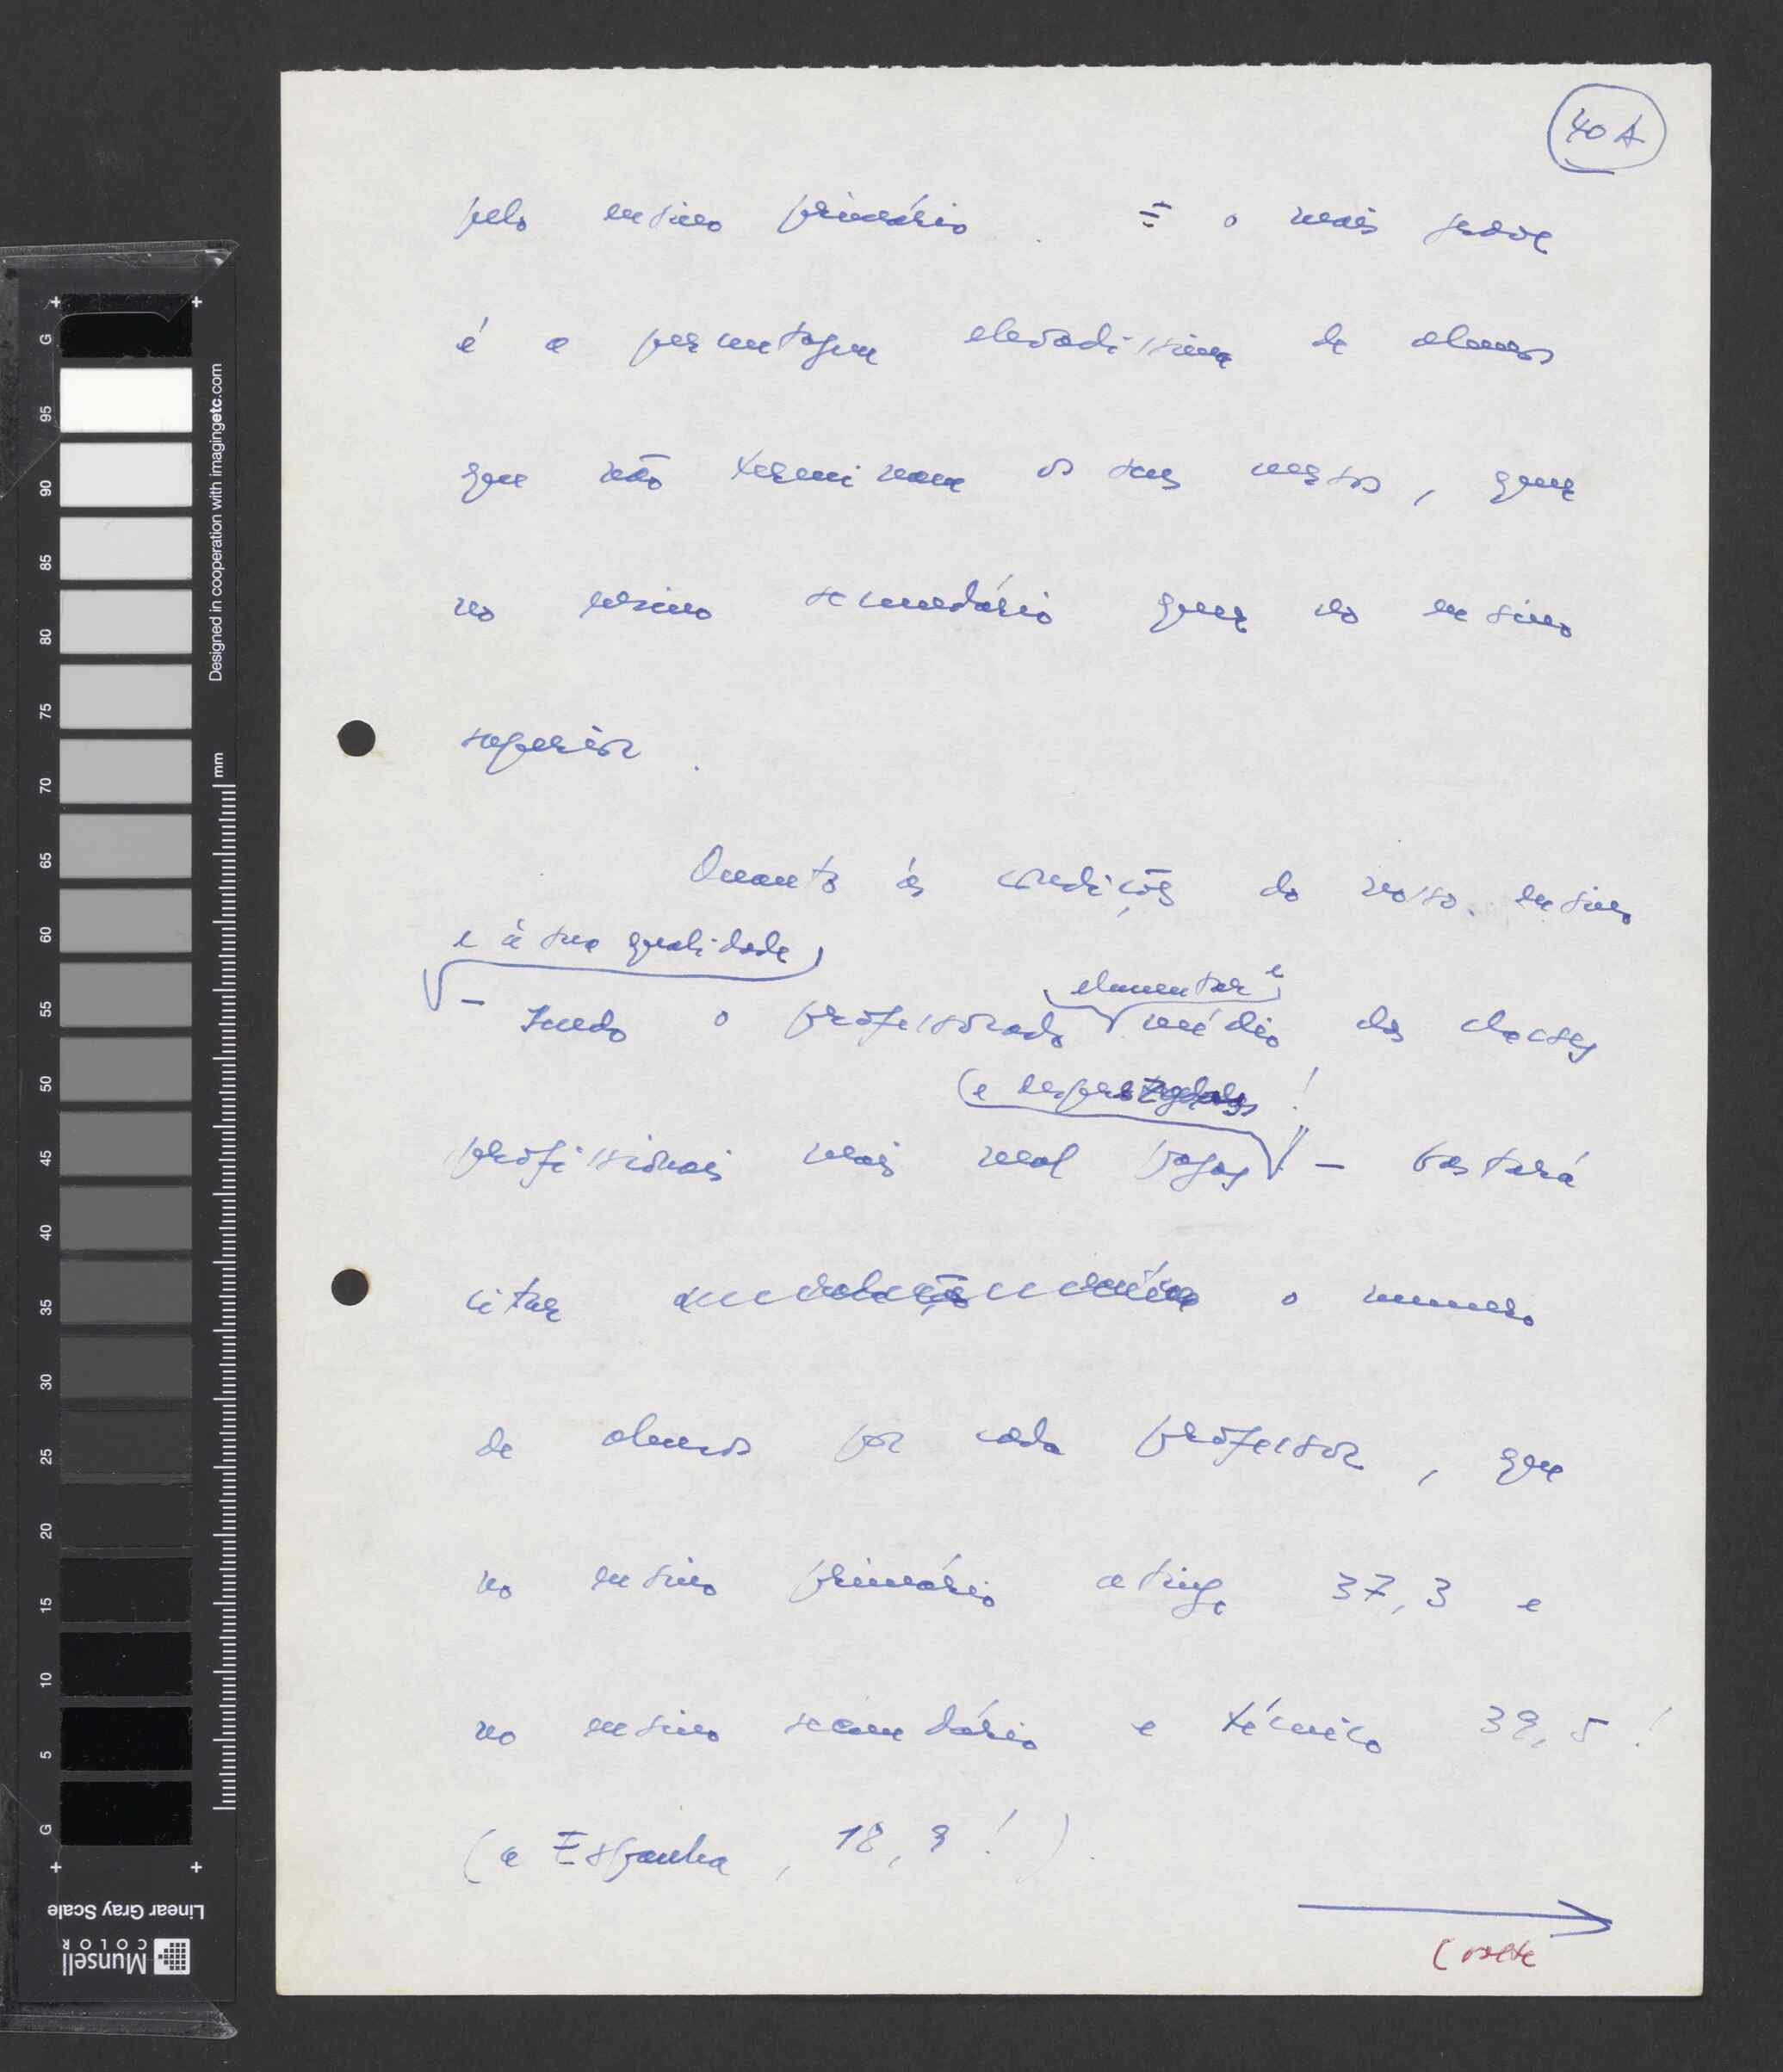 40 A
pelo ensino primário. E o mais grave
é a percentagem elevadíssima de alunos
que não terminam os seus cursos, quer
no ensino secundário quer no ensino
superior.
Quanto às condições do nosso ensino
e à sua qualidade
elementar e
- sendo o professorado médio das classes
(e
profissionais mais mal pagas! - bastará
citar o numero
de alunos por cada professor, que
no ensino primário atinge 37,3 e
no ensino secundário e técnico 39,5!
(a Espanha, 18,9!).
(volte
G
95
90
85
80
75
70
65
60
55
50
45
40
35
30
25
20
15
10
5
G
Designed in cooperation with imagingetc.com
mm
Linear Gray Scale
Munsell
COLOR